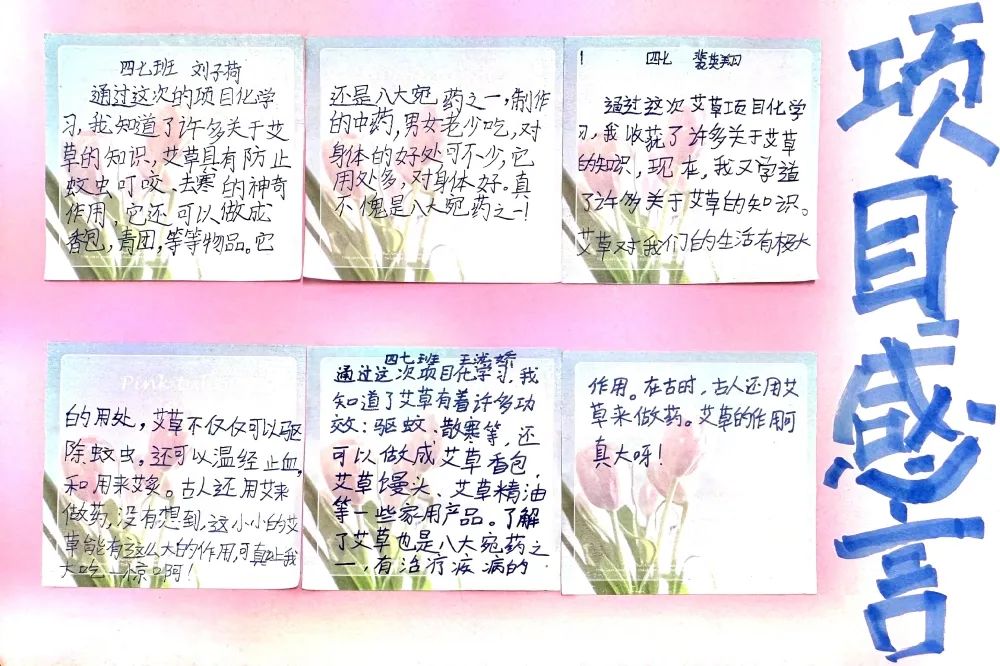 项目感言
四七班 刘子荷
通过这次的项目化学
习，我知道了许多关于艾
草的知识，艾草具有防止
蚊虫叮咬、去寒的神奇
作用，它还可以做成
香包，青团，等等物品。它
还是八大宛药之一，制作
的中药，男女老少吃，对
身体的好处可不少，它
用处多，对身体好。真
不愧是八大宛药之一！
四七
通过这次艾草项目化学
习，我收获了许多关于艾草
的知识，现在，我又学道
了许多关于艾草的知识。
艾草对我们的生活有极大
的用处，艾草不仅仅可以驱
除蚊虫。还可以温经止血，
和用来艾炙。古人还用艾来
做药，没有想到，这小小的艾
草能有这么大的作用，可真让我
大吃一惊啊！
四七班 王
通过这次项目化学习，我
知道了艾草有着许多功
效：驱蚊、散寒等，还
可以做成艾草香包，
艾草馒头、艾草精油
等一些家用产品。了解
了艾草也是八大宛药之
一，有治疗疾病的
作用。在古时，古人还用艾
草来做药。艾草的作用可
真大呀！